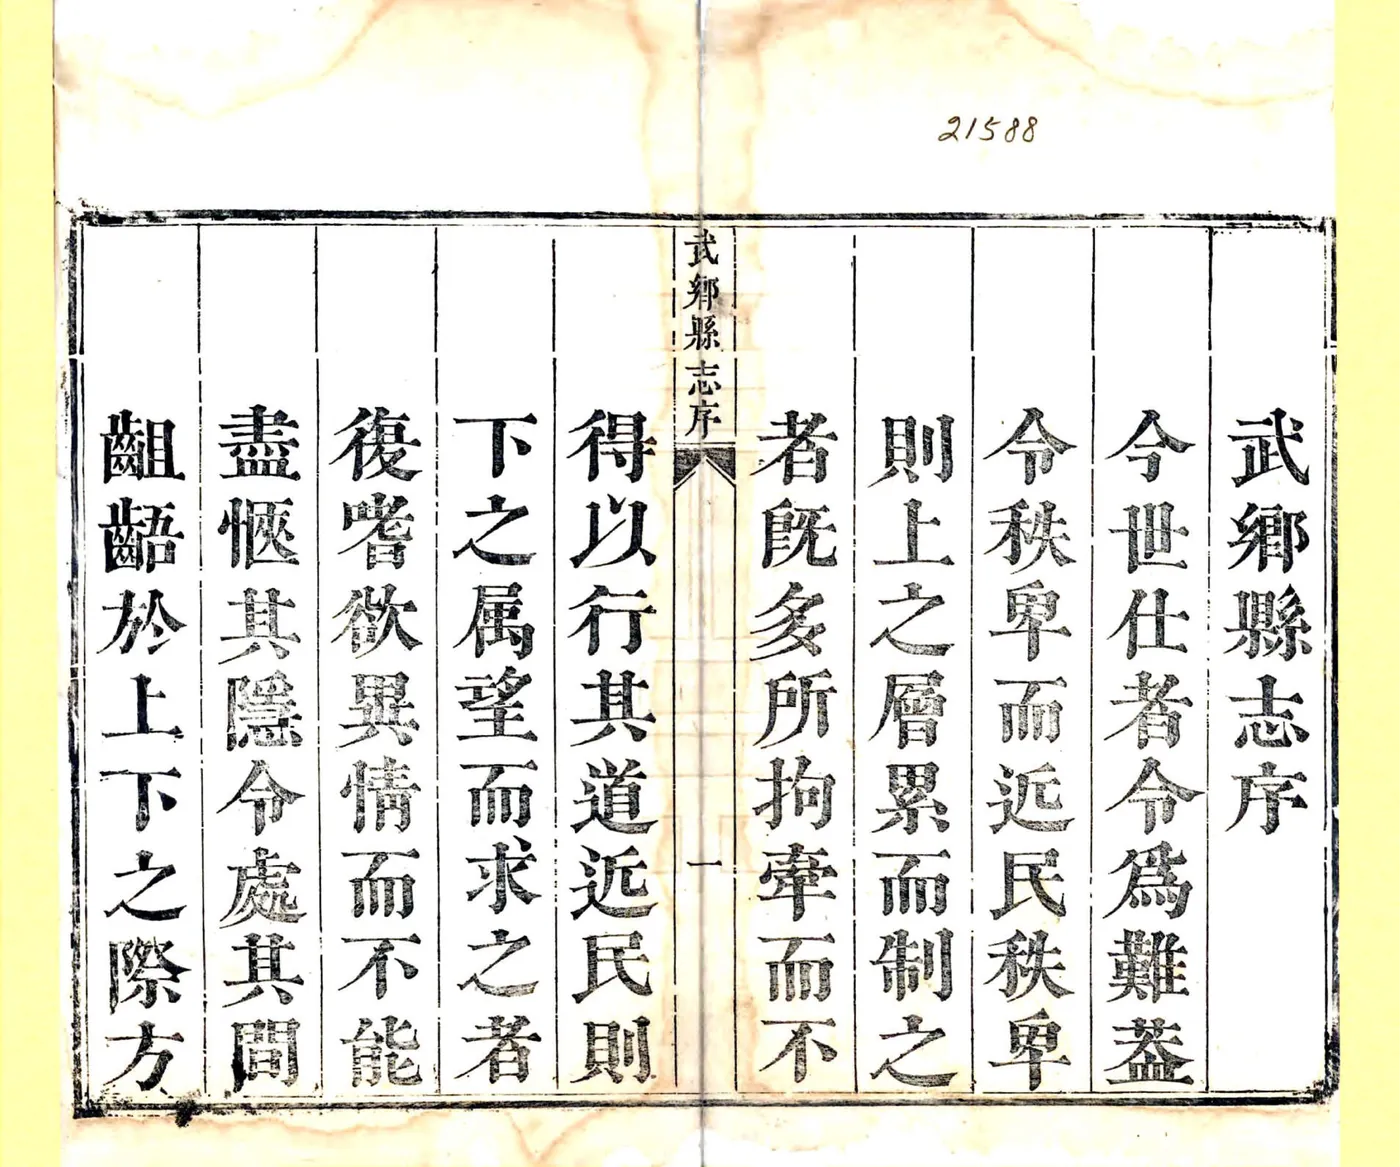 21588
武鄉縣志序
今世仕者令爲難葢
令秩卑而近民秩卑
則上之層累而制之
者旣多所拘牽而不
武鄉縣志序
一
得以行其道近民則
下之属望而求之者
復嗜欲異情而不能
盡愜其隱令處其間
齟齬於上下之際方